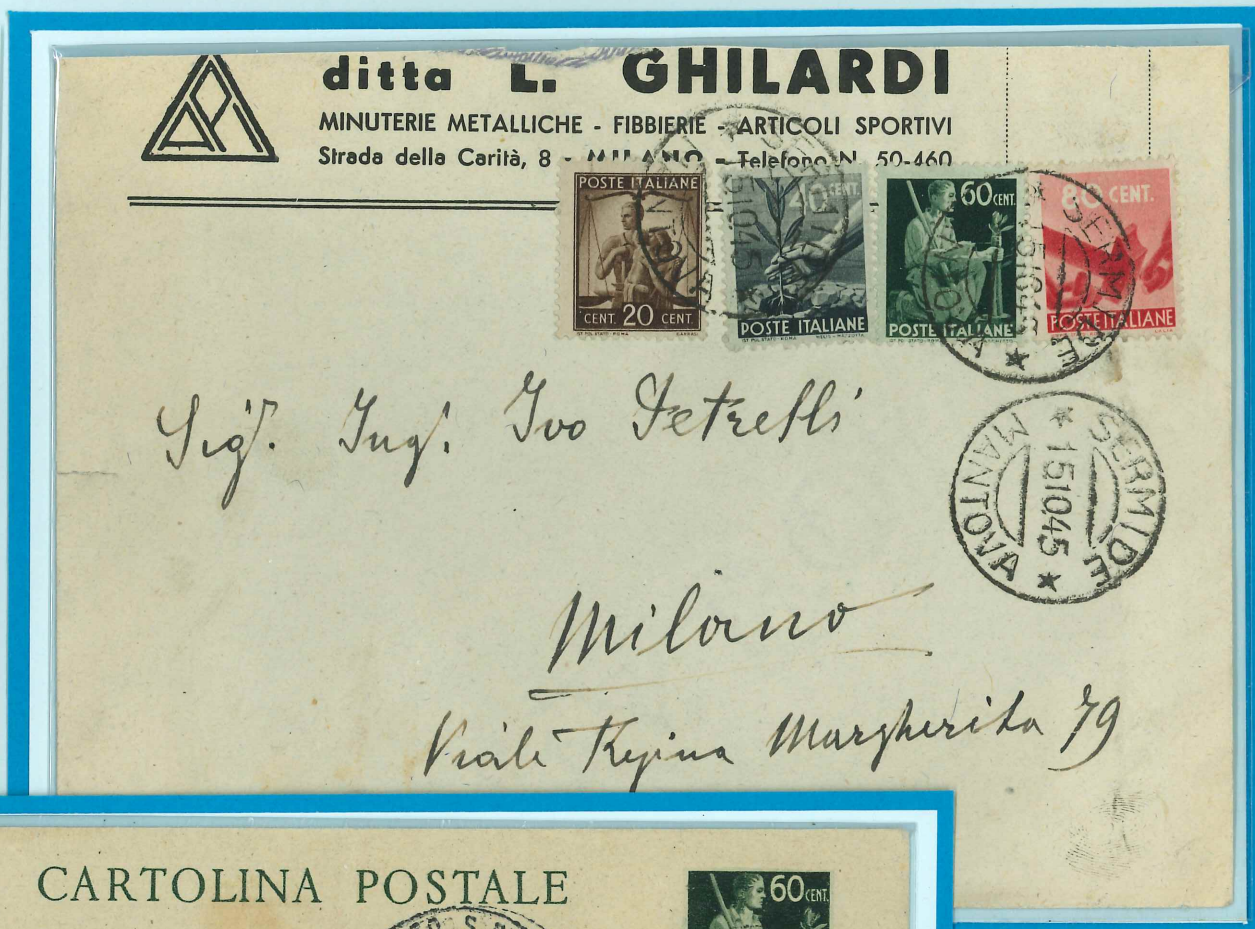 ditta L. GHILARDI
MINUTERIE METALLICHE - FIBBIERIE - ARTICOLI SPORTIVI
Strada della Carità, 8 - MILANO - Telefono N. 50-460
POSTE ITALIANE
CENT 20 CENT
40 CENT.
POSTE ITALIANE
60 CENT.
POSTE ITALIANE
80 CENT.
POSTE ITALIANE
SERMIDE
15.10.45
MANTOVA
SERMIDE
15.10.45
MANTOVA
Sig. Ing. Ivo Petrelli
SERMIDE
15.10.45
MANTOVA
Milano
Viale Regina Margherita 79
CARTOLINA POSTALE
60 CENT.